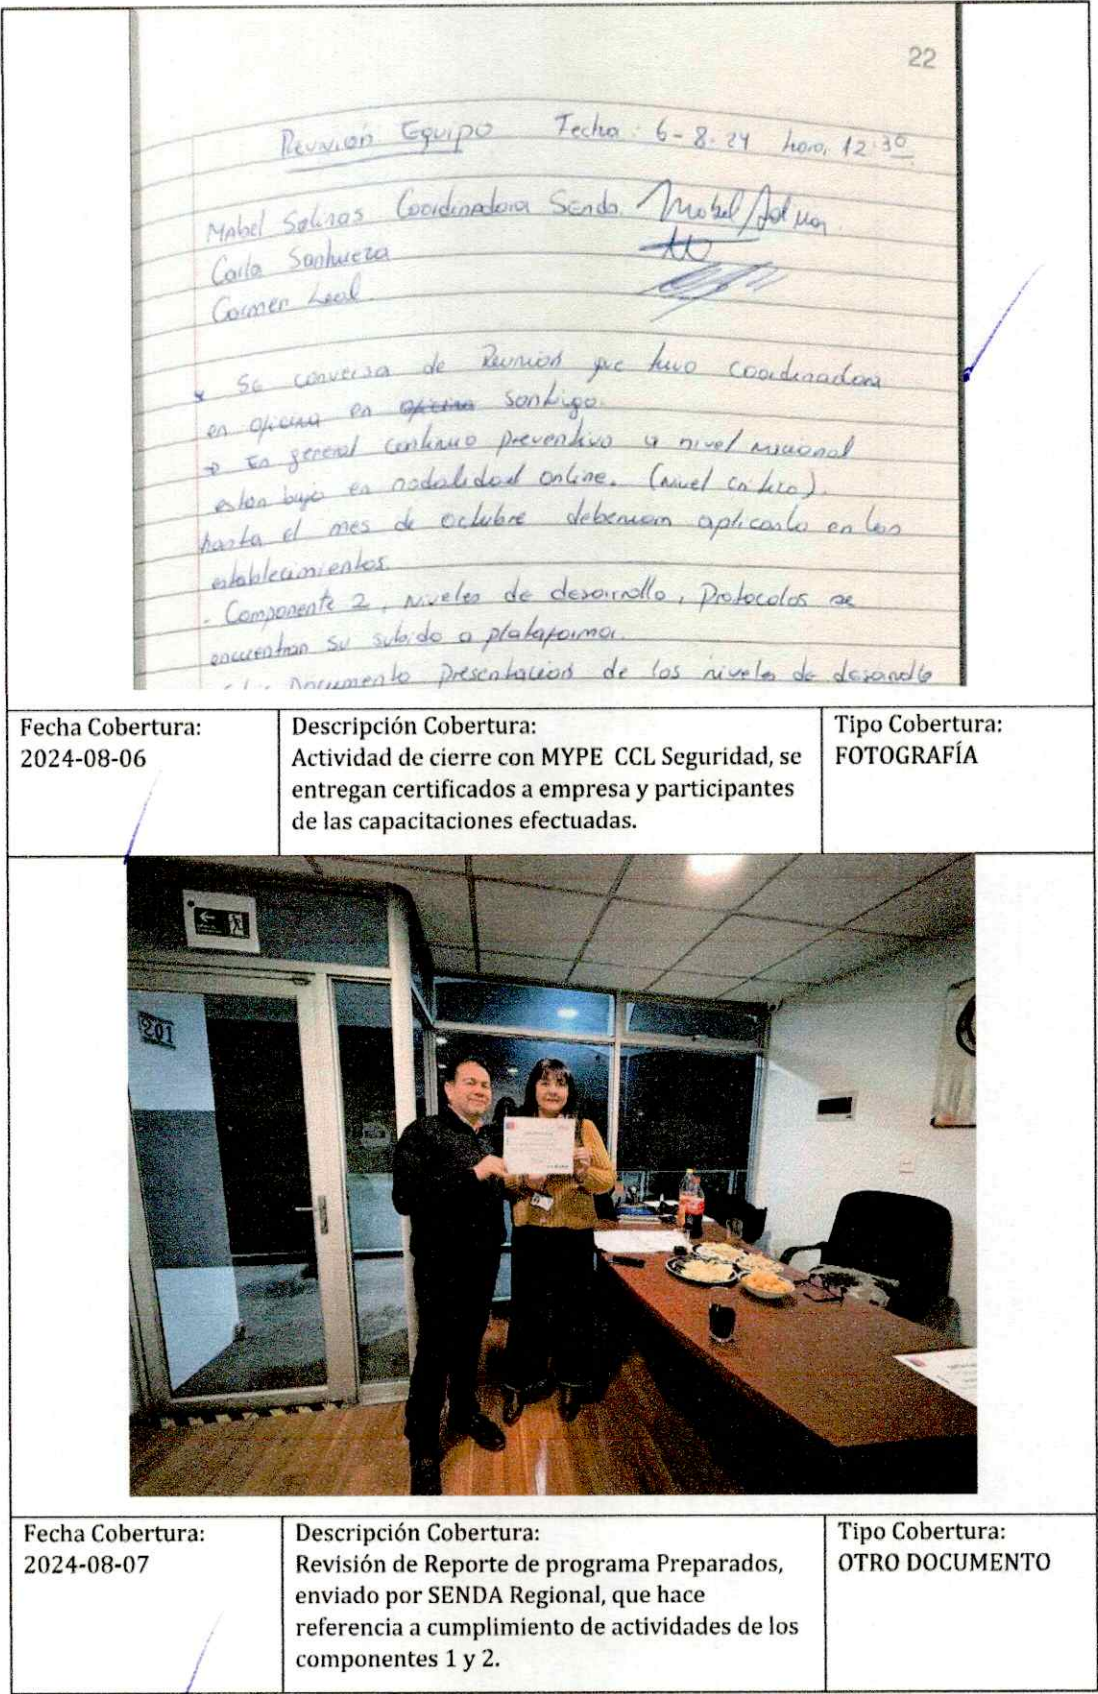 22
Reunión Equipo Fecha: 6-8-24 hora, 12:30
Mabel Salinas Coordinadora Senda. Mabel Salinas
Carla Sanhueza
Carmen Leal.
* Se conversa de Reunión que tuvo coordinadora
en oficina en oficina Santiago.
→ En general continuo preventivo a nivel nacional
estan bajo en modalidad online. (nivel critico).
hasta el mes de octubre deberian aplicarlo en los
establecimientos.
- Componente 2, niveles de desarrollo, Protocolos se
encuentran su subido a plataforma.
Documento presentación de los niveles de desarrollo
Fecha Cobertura:
2024-08-06
Descripción Cobertura:
Actividad de cierre con MYPE CCL Seguridad, se
entregan certificados a empresa y participantes
de las capacitaciones efectuadas.
Tipo Cobertura:
FOTOGRAFÍA
201
Fecha Cobertura:
2024-08-07
Descripción Cobertura:
Revisión de Reporte de programa Preparados,
enviado por SENDA Regional, que hace
referencia a cumplimiento de actividades de los
componentes 1 y 2.
Tipo Cobertura:
OTRO DOCUMENTO